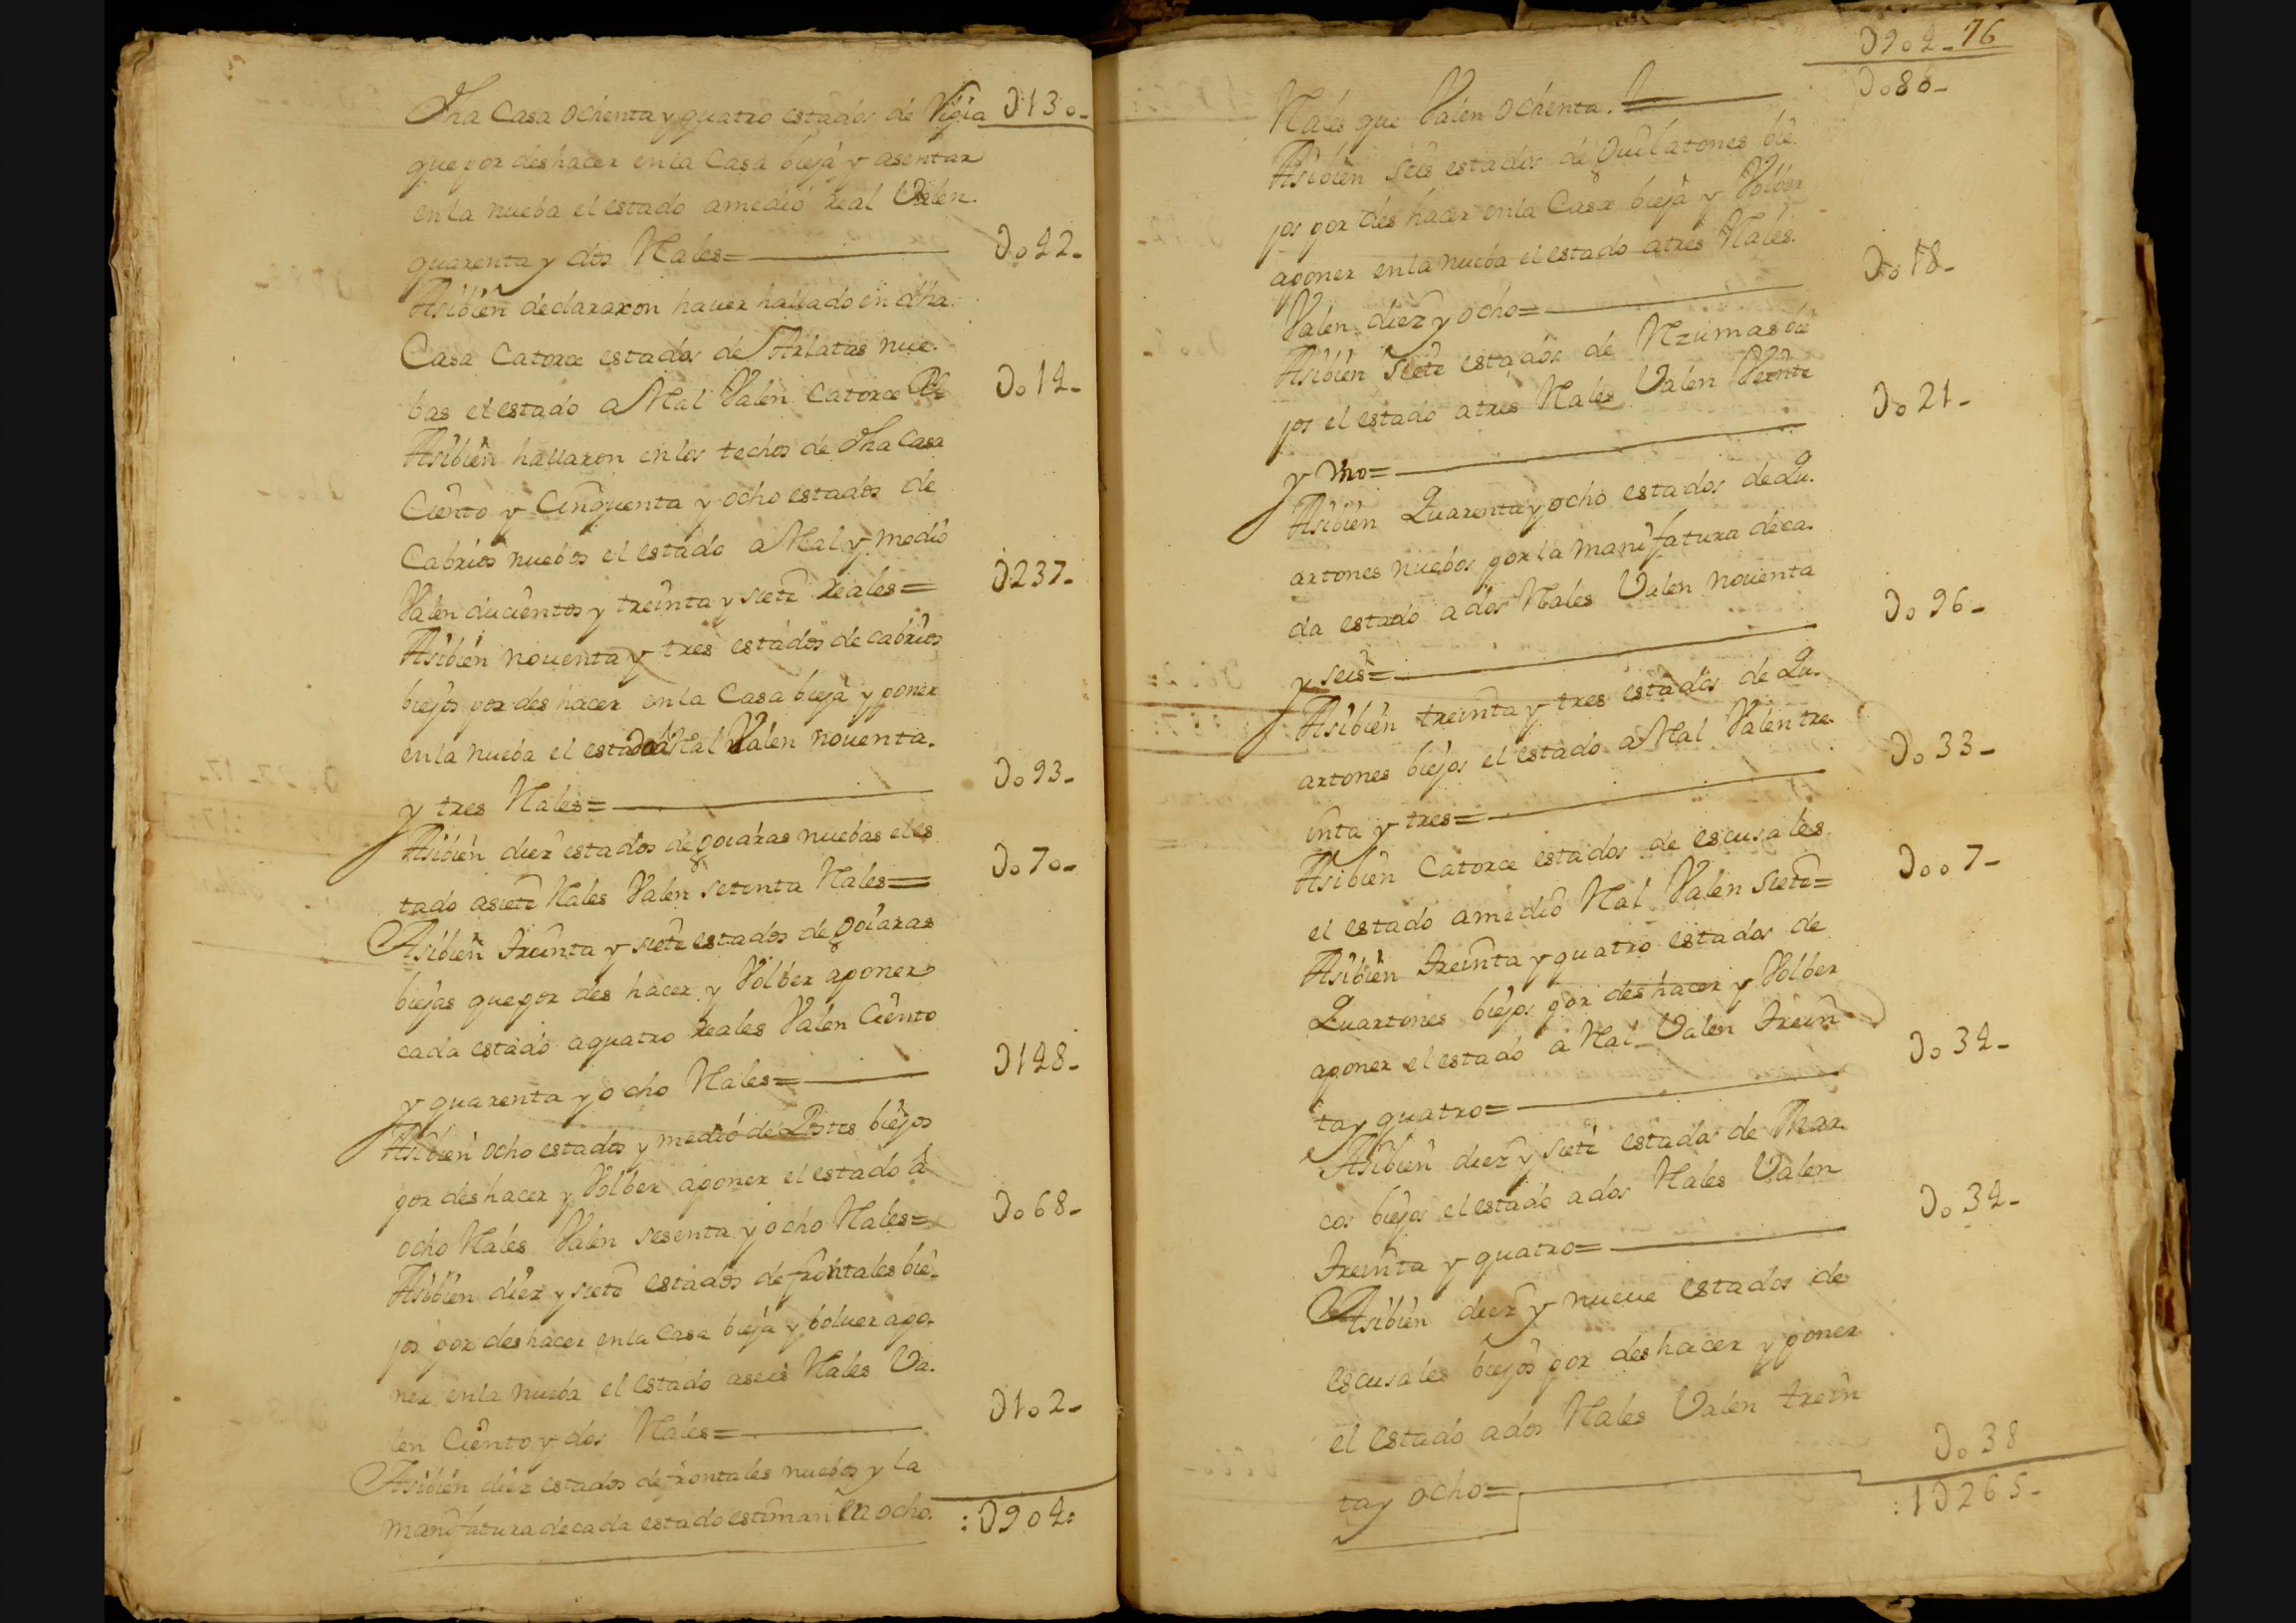 Dha Casa ochenta y quatro estados de Vigia D130-
que por deshacer en la Casa bieja y asentar
en la nueba el estado a medio real Valen
quarenta y dos Rales= Do42-
Asibien declararon hauer hallado en dha
Casa Catorce estados de Arlatas nue-
bas el estado a Ral Valen Catorce Rs Do14-
Asibien hallaron en los techos de Dha Casa
Ciento y Cinquenta y ocho estados de
Cabrios nuebos el estado a Ral y medio
Valen ducientos y treinta y siete Reales= D237-
Asibien nouenta y tres estados de cabrios
biejos por deshacer en la Casa bieja y poner
en la nueba el estado a Ral Valen nouenta
y tres Rales= Do93-
Asibien diez estados de goiaras nuebas el es
tado a siete Rales Valen setenta Rales= Do70-
Asibien Treinta y siete estados de goiaras
biejas que por deshacer y Volber a poner
cada estado a quatro Reales Valen Ciento
y quarenta y ocho Rales= D148-
Asibien ocho estados y medio de Postes biejos
por deshacer y Volber a poner el estado a
ocho Rales Valen sesenta y ocho Rales= Do68-
Asibien diez y siete estados de frontales bie-
jos por deshacer en la Casa bieja y boluer a po-
ner en la nueba el estado a seis Rales Va-
len Ciento y dos Rales= D1o2-
Asibien diez estados de frontales nuebos y la
manifatura de cada estado estiman en ocho. :D9o4:
D9o4- 76
Rales que Valen ochenta. Do80-
Asibien seis estados de quilatones bie-
jos por deshacer en la Casa bieja y Volber
a poner en la nueba el estado a tres Rales.
Valen diez y ocho= Do18-
Asibien siete estados de Azumas bie
jos el estado a tres Rales Valen Veinte
y Vno= Do21-
Asibien Quarenta y ocho estados de Qu-
artones nuebos por la manifatura de ca-
da estado a dos Rales Valen nouenta
y seis= Do96-
Asibien treinta y tres estados de Qu-
artones biejos el estado a Ral Valen tre-
inta y tres= Do33-
Asibien Catorce estados de escusales
el estado a medio Ral Valen siete= Doo7-
Asibien Treinta y quatro estados de
Quartones biejos por deshacer y Volber
a poner el estado a Ral Valen Trein
ta y quatro= Do34-
Asibien diez y siete estados de Mar-
cos biejos el estado a dos Rales Valen
Treinta y quatro= Do34-
Asibien diez y nueue estados de
escusales biejos por deshacer y poner
el estado a dos Rales Valen trein
ta y ocho= Do38
:1D265-